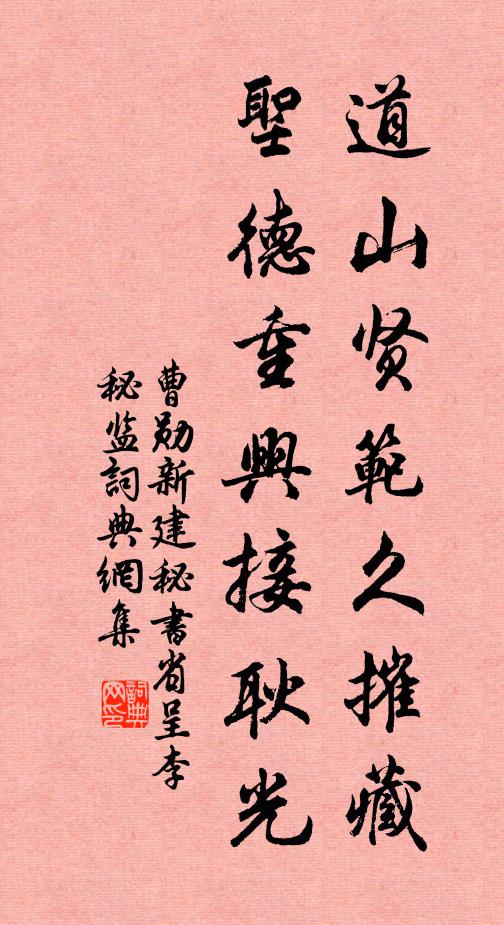 道山贤範久摧藏
聖德重興接耿光
曹勋新建秘書省呈李
秘监詞典網集
詞典网印